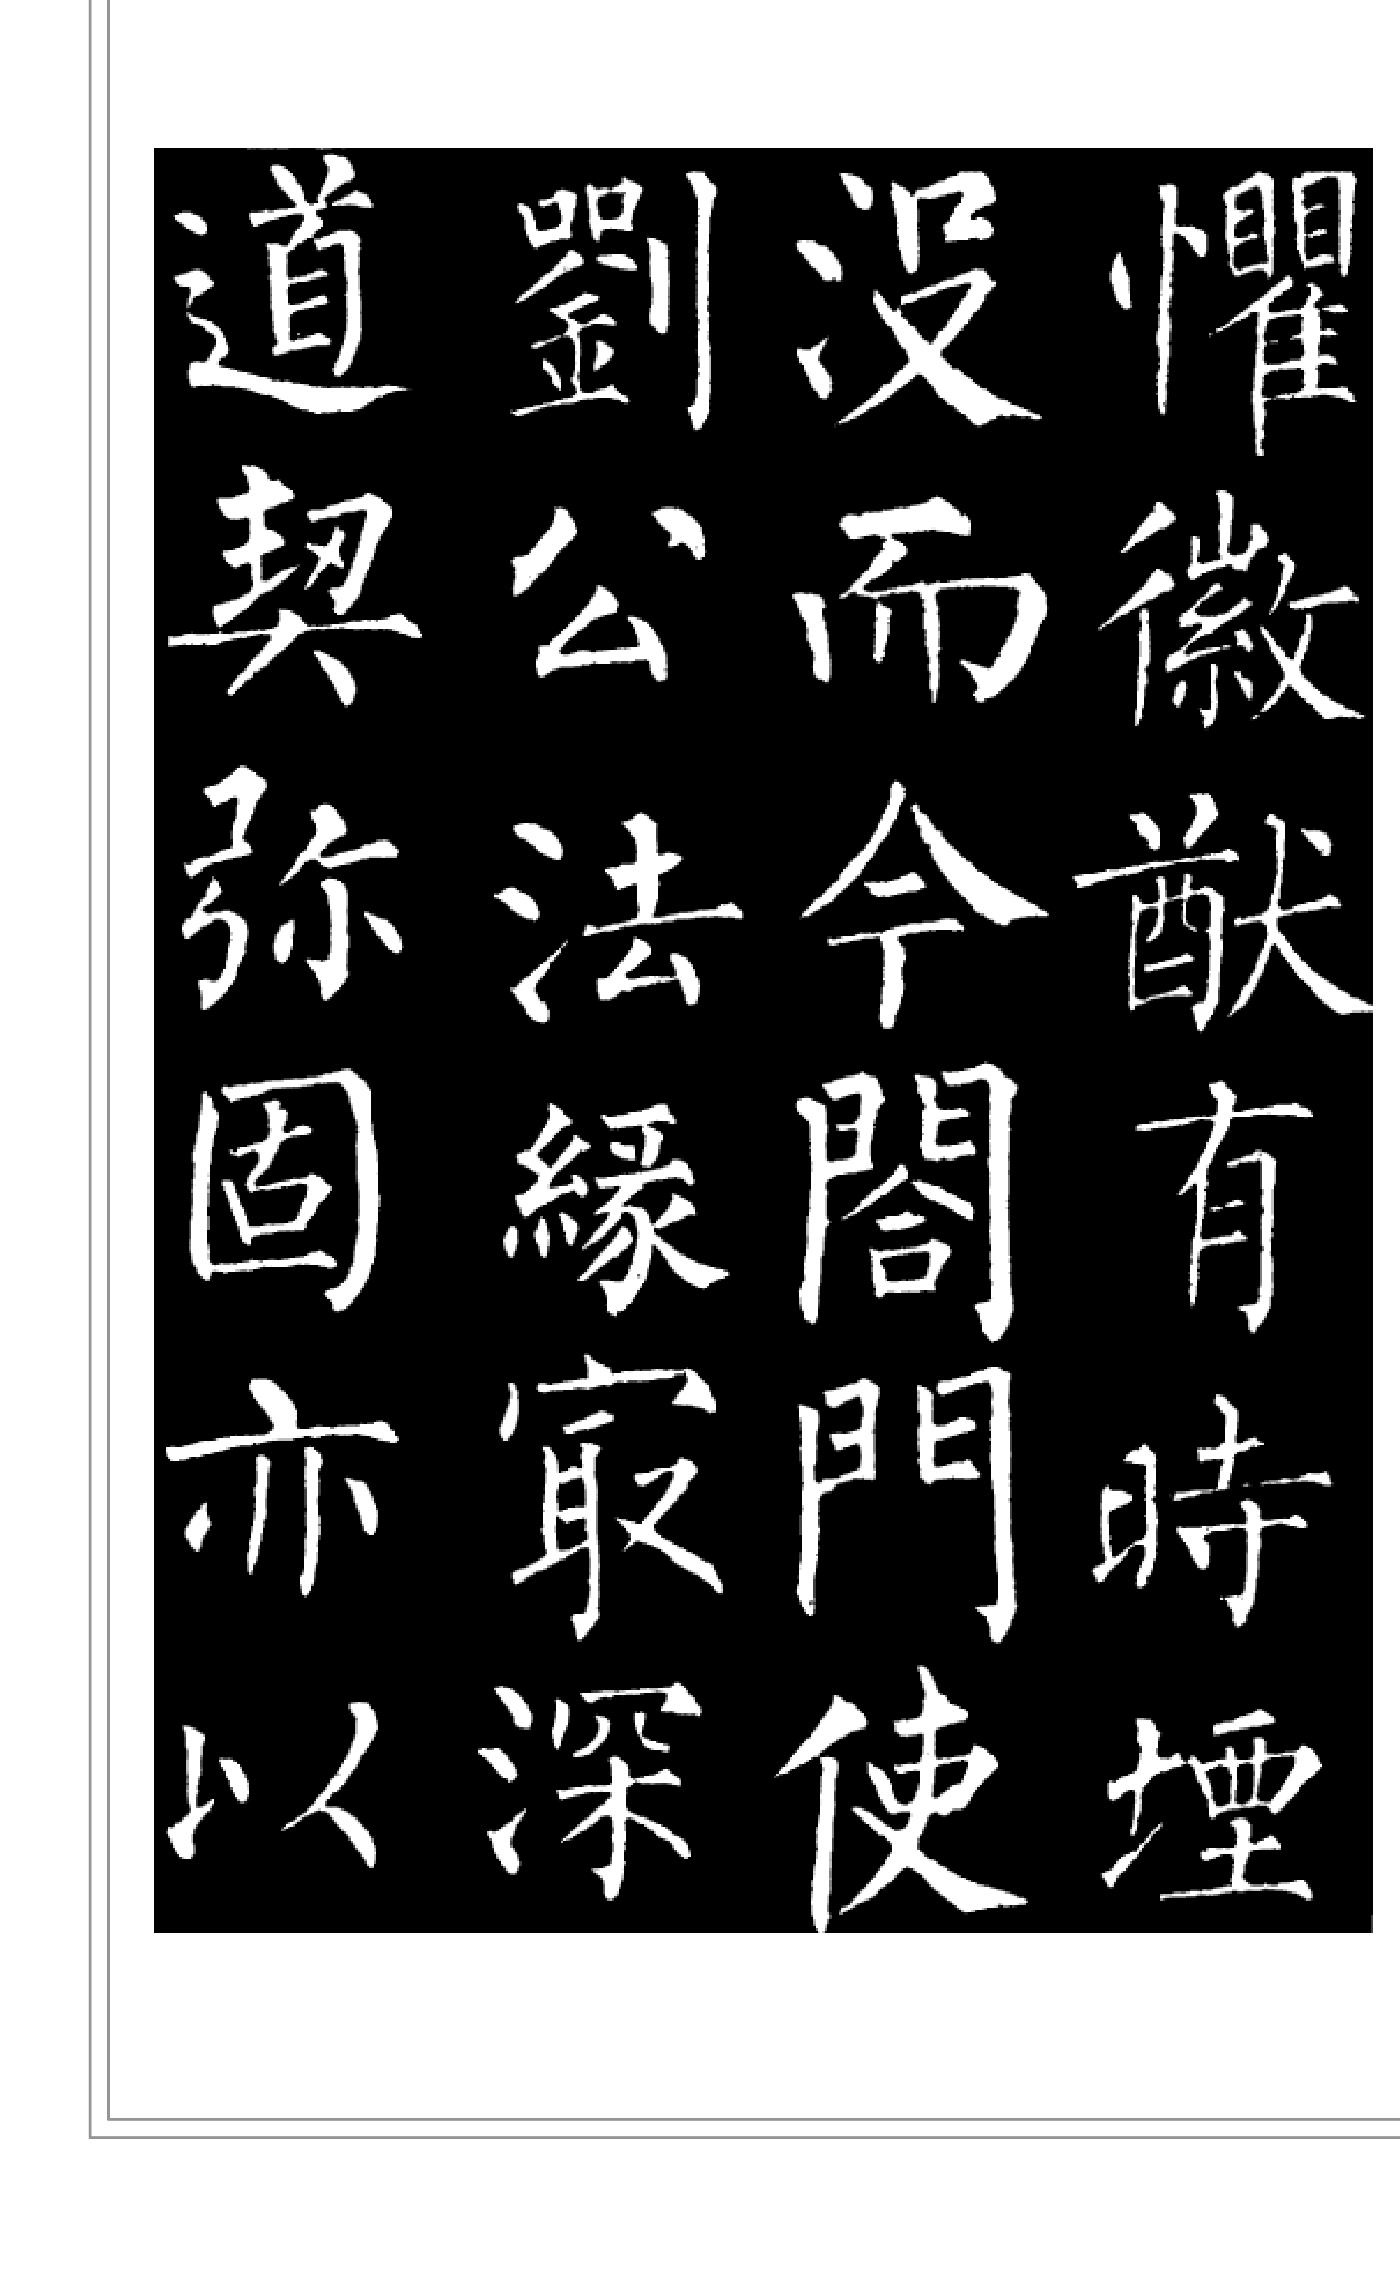 懼徽猷有時堙
没而今閤門使
劉公法緣㝡深
道契弥固亦以